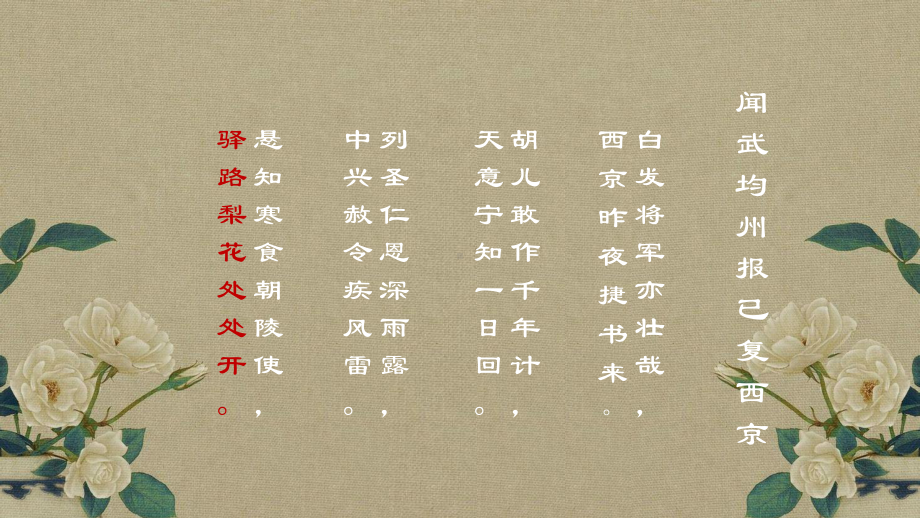 闻武均州报已复西京
白发将军亦壮哉，
西京昨夜捷书来。
胡儿敢作千年计，
天意宁知一日回。
列圣仁恩深雨露，
中兴赦令疾风雷。
悬知寒食朝陵使，
驿路梨花处处开。